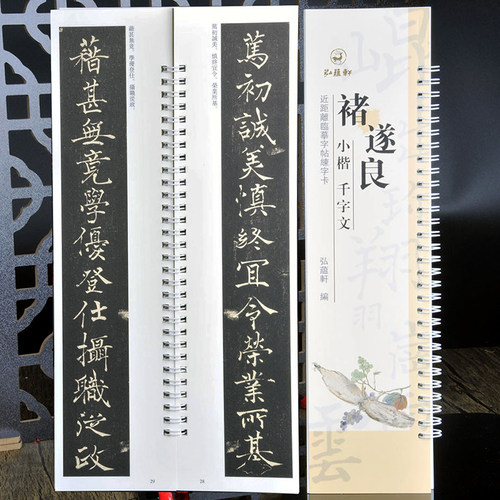 弘蘊軒
褚遂良
小楷 千字文
近距離臨摹字帖練字卡
弘蘊軒 編
篤初誠美，慎終宜令。榮業所基，
篤初誠美慎終宜令榮業所基
28
藉甚無竟。學優登仕，攝職從政。
藉甚無竟學優登仕攝職從政
29